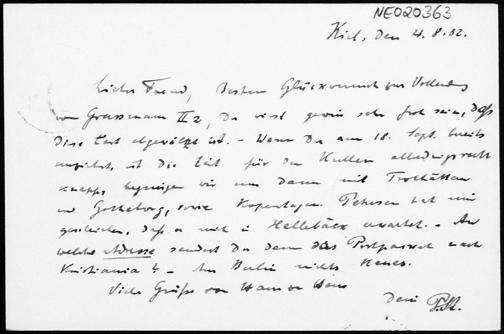 NE020363
Kiel, den 4.8.02.
Lieber Freund, Besten Glückwunsch zur Vollendung
von Grassmann II 2, Du wirst gewiss sehr froh sein, daß
diese Last abgewälzt ist. – Wenn Du am 18. Sept. bereits
ist die Zeit für den allerdings recht
knapp, begnügen wir uns dann mit Trolhättan
und Gotheborg, sowie Kopenhagen. Petersen hat mir
geschrieben, daß er mich in Hellebäck erwartet. – An
welche Adresse sendest Du denn das Postpacket nach
Kristiania? – Aus Berlin nichts Neues.
Viele Grüße von Haus zu Haus
Dein P. St.